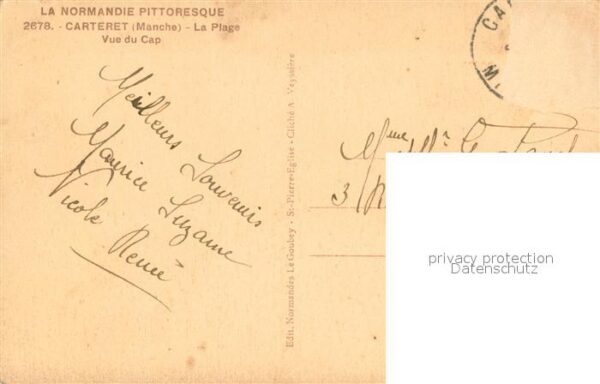 LA NORMANDIE PITTORESQUE
2678. - CARTERET (Manche) - La Plage
Vue du Cap
Meilleurs Souvenirs
Maurice Suzanne
Nicole Renée
Edit. Normandes Le Goubey - St-Pierre-Eglise - Cliché A Veyssière
CA
Mme
3
privacy protection
Datenschutz